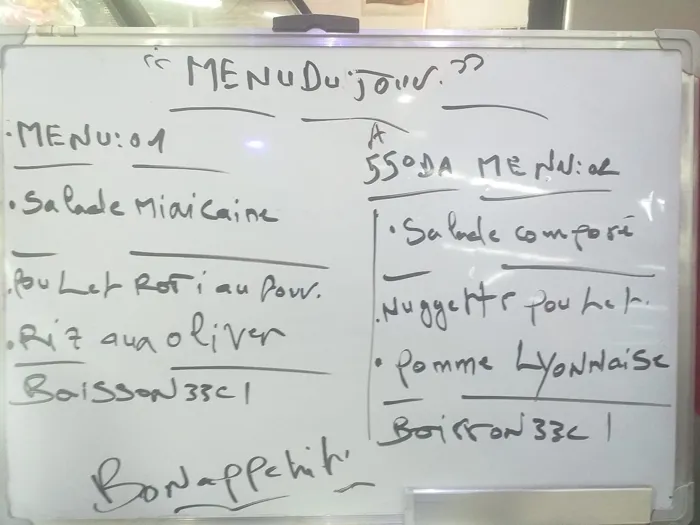 "MENU DU JOUR."
MENU: 01
• Salade Mixicaine
• Poulet Roti au Four.
• Riz aux olives
Boisson 33cl
A
550DA MENU: 02
• Salade composé
• Nuggets poulet.
• Pomme LYONNAiSe
Boisson 33cl
Bon appetit.